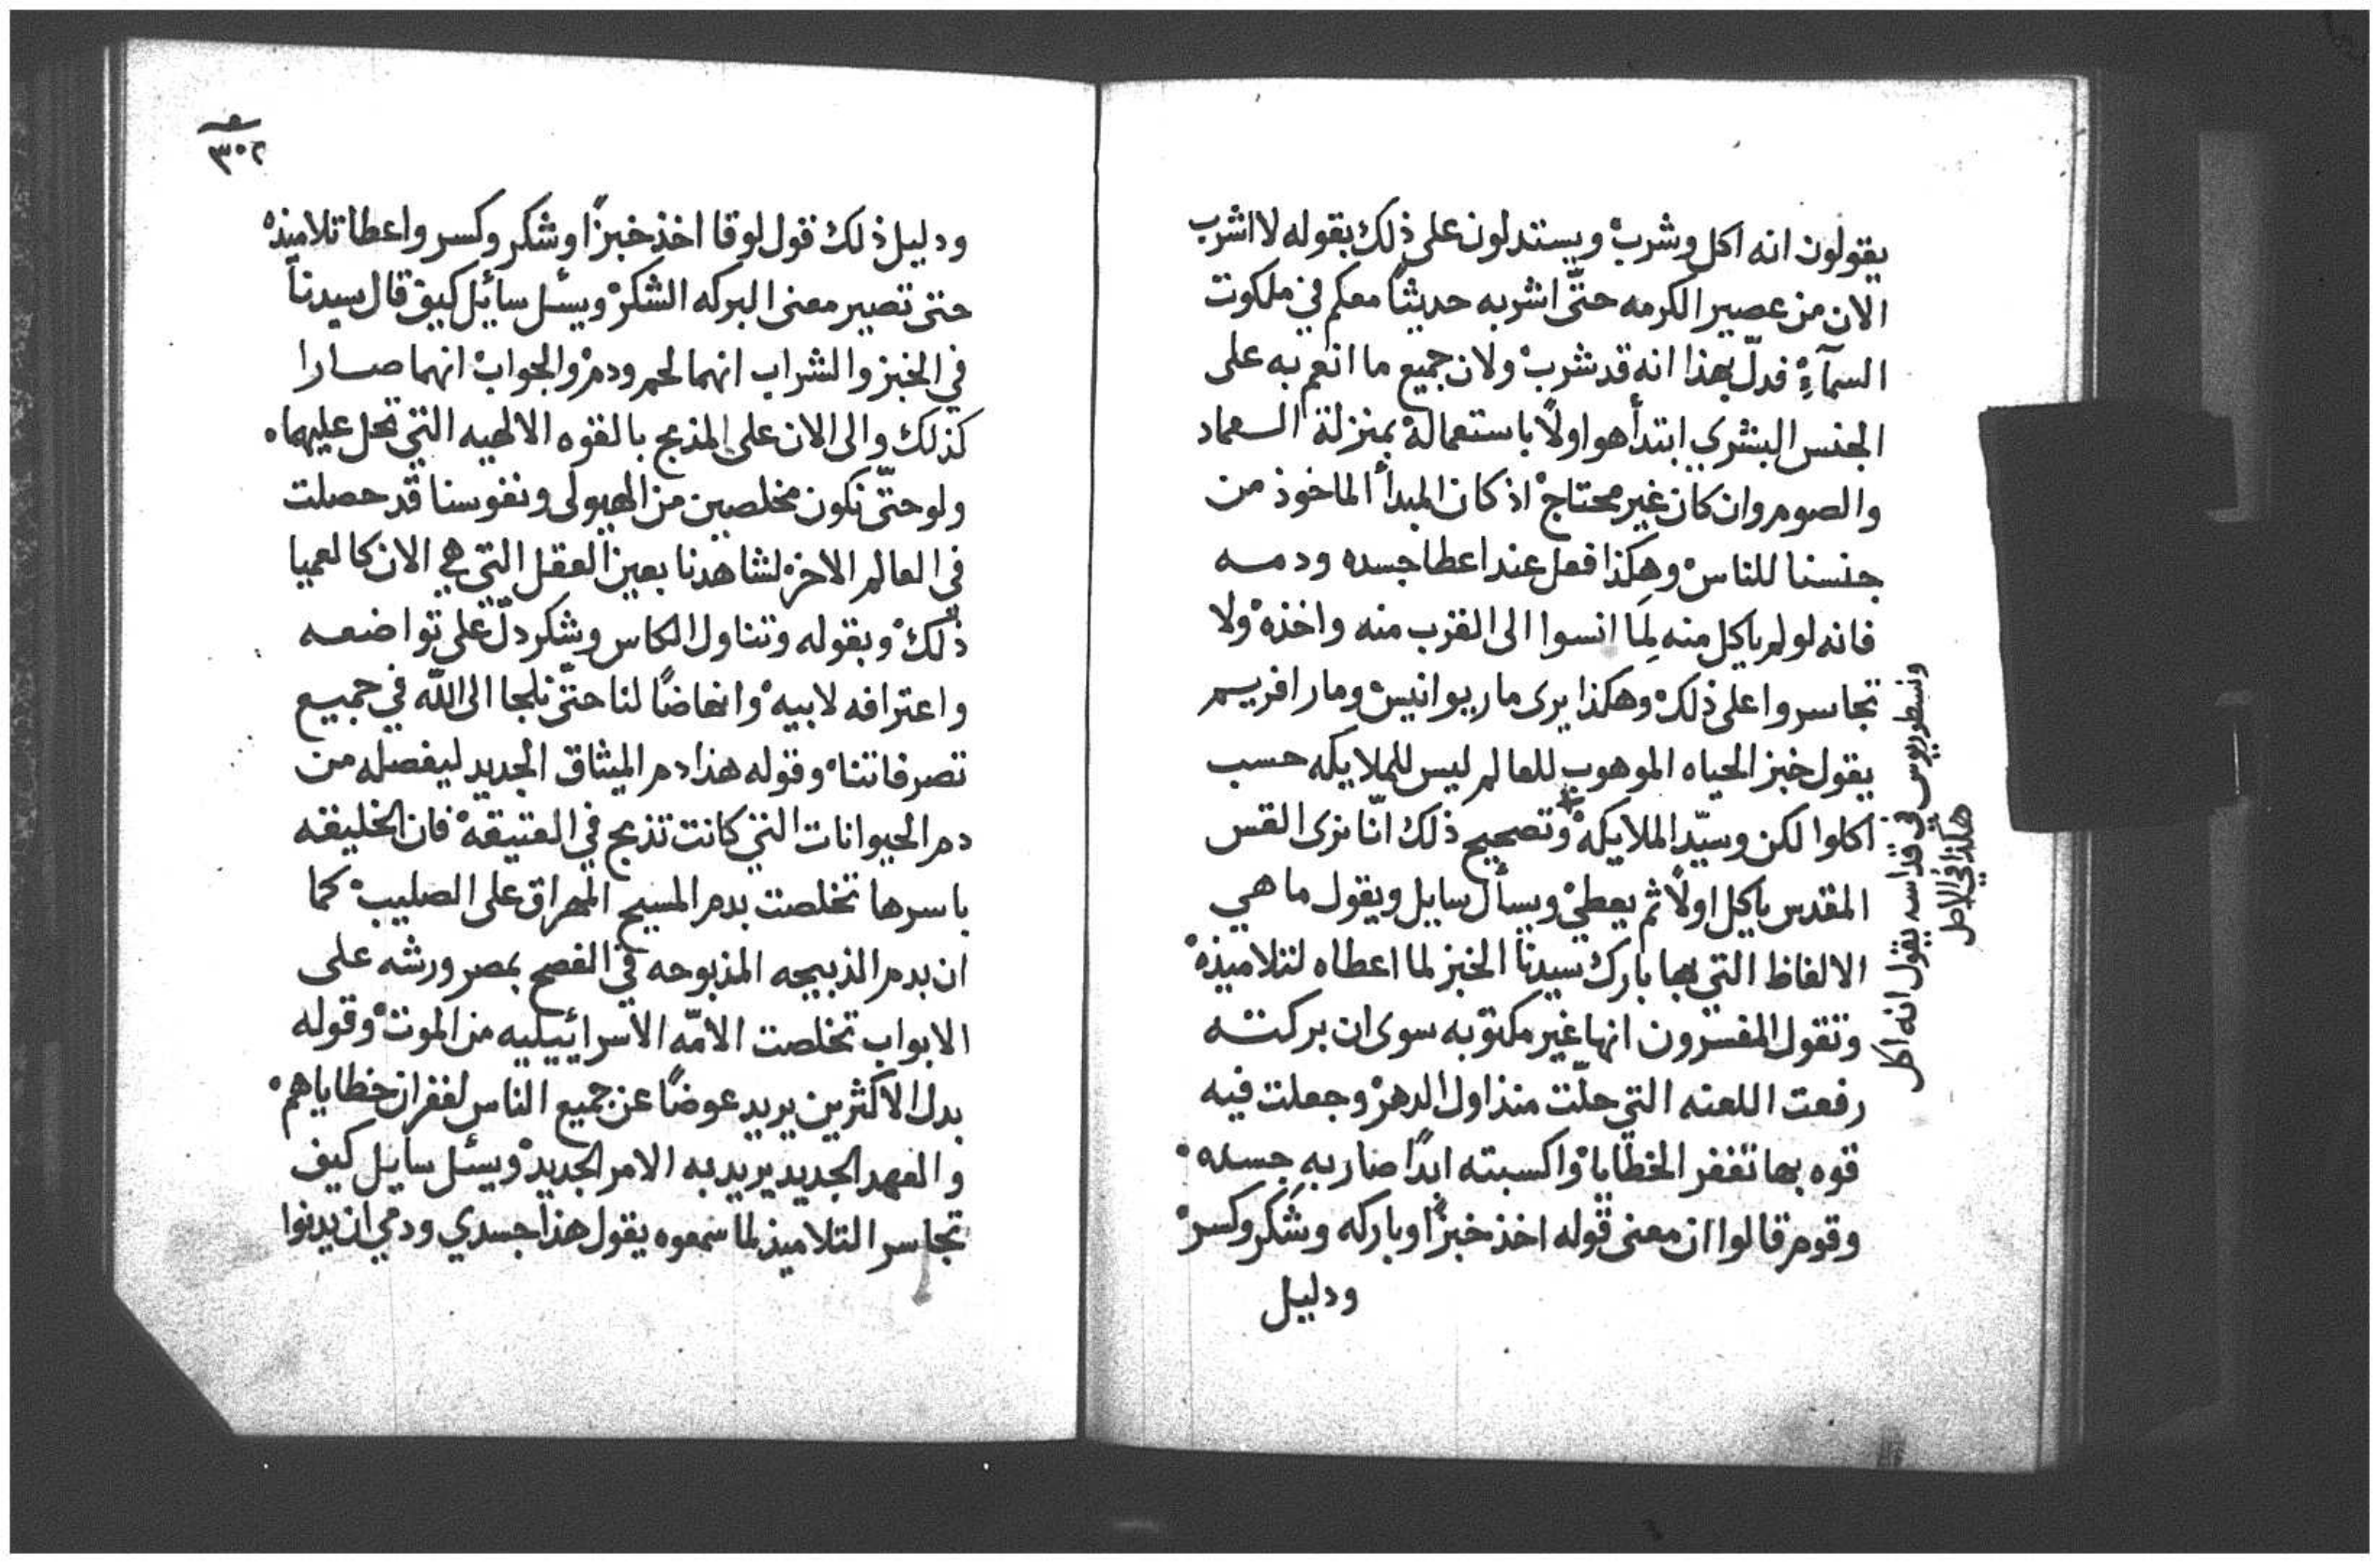 يقولون انه اكل وشرب ويستدلون على ذلك بقوله لا اشرب
الان من عصير الكرمه حتّى اشربه حديثاً معكم في ملكوت
السمآءِ فدلّ بهذا انه قد شرب ولان جميع ما انعم به على
الجنس البشري ابتدأ هو اولاً باستعماله بمنزلة العماد
والصوم وان كان غير محتاج اذ كان المبدأ الماخوذ من
جنسنا للناس وهكذا فعل عند اعطا جسده ودمه
فانه لو لم ياكل منه لما انسوا الى القرب منه واخذه ولا
تجاسروا على ذلك وهكذا يرى مار يوانيس ومار افريم
يقول خبز الحياه الموهوب للعالم ليس للملايكه حسب
اكلوا لكن وسيّد الملايكه وتصحيح ذلك انّا نرى القس
المقدس ياكل اولاً ثم يعطي ويسأل سايل ويقول ما هي
الالفاظ التي بها بارك سيدنا الخبز لما اعطاه لتلاميذه
وتقول المفسرون انها غير مكتوبه سوى ان بركته
رفعت اللعنه التي حلّت منذ اول الدهر وجعلت فيه
قوه بها تغفر الخطايا واكسبته ايداً صار به جسده
وقوم قالوا ان معنى قوله اخذ خبزاً وباركه وشكر وكسر
ودليل
ونسطوريوس في قداسه يقول انه اكل
هكذا في الاصل
٣٠٢
ودليل ذلك قول لوقا اخذ خبزاً وشكر وكسر واعطا تلاميذه
حتى تصير معنى البركه الشكر ويسئل سائيل كيف قال سيدنا
في الخبز والشراب انهما لحم ودم والجواب انهما صارا
كذلك والى الان على المذبح بالقوه الالهيه التي تحل عليهما
ولو حتّى نكون مخلصين من الهيولى ونفوسنا قد حصلت
في العالم الاخر لشاهدنا بعين العقل التي هي الان كالعميا
ذلك وبقوله وتناول الكاس وشكر دلّ على تواضعه
واعترافه لابيه وانهاضاً لنا حتّى نلجا الى اللّه في جميع
تصرفاتنا وقوله هذا دم الميثاق الجديد ليفصله من
دم الحيوانات التي كانت تذبح في العتيقه فان الخليقه
باسرها تخلصت بدم المسيح المهراق على الصليب كما
ان بدم الذبيحه المذبوحه في الفصح بمصر ورشه على
الابواب تخلصت الامّه الاسرائييليه من الموت وقوله
بدل الاكثرين يريد عوضاً عن جميع الناس لغفران خطاياهم
والعهد الجديد يريد به الامر الجديد ويسئل سايل كيف
تجاسر التلاميذ لما سمعوه يقول هذا جسدي ودمي ان يدنوا